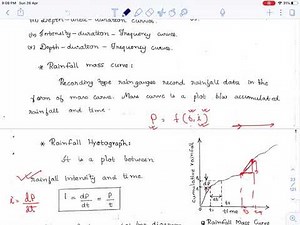 9:08 PM Sun 26 Apr
(ii) Depth-area-duration curves.
(iii) Intensity-duration-frequency curves.
(iv) Depth-duration-Frequency curves.
* Rainfall mass curve:
Recording type raingauges record rainfall data in the
form of mass curve. Mass curve is a plot b/w accumulated
rainfall and time.
P = f(t, i)
* Rainfall Hyetograph:
It is a plot between
rainfall Intensity and time.
i = dP/dt
I = dP/dt = P/t
cumulative rainfall
dP
dt
time
Rainfall Mass Curve